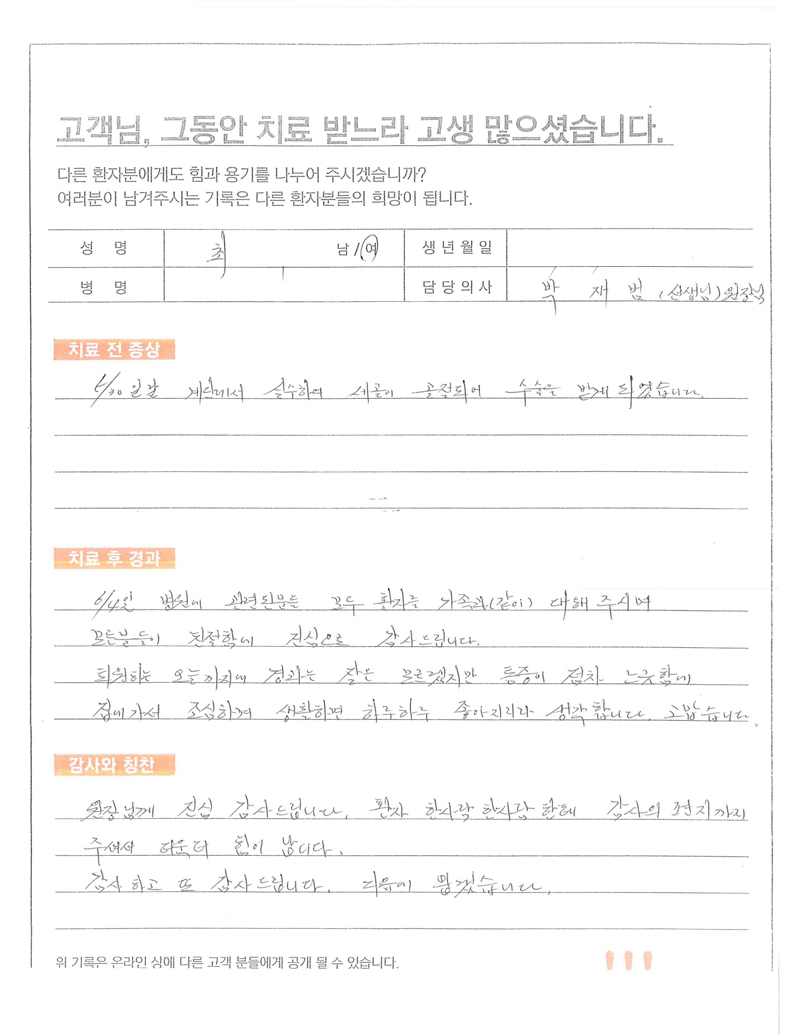 고객님, 그동안 치료 받느라 고생 많으셨습니다.
다른 환자분에게도 힘과 용기를 나누어 주시겠습니까?
여러분이 남겨주시는 기록은 다른 환자분들의 희망이 됩니다.
성 명 최 남/여 생년월일
병 명 담당의사 박 재 범 (선생님) 원장님
치료 전 증상
5/30일날 계단에서 실수하여 세골이 골절되어 수술을 받게 되었습니다.
치료 후 경과
6/4일 병원에 관련된분들 모두 환자를 가족과(같이) 대해 주시며
모든분들이 친절함에 진심으로 감사드립니다.
퇴원하는 오늘까지에 경과는 잘은 모르겠지만 통증이 점차 느긋함에
집에가서 조심하여 생활하면 하루하루 좋아지리라 생각합니다. 고맙습니다.
감사와 칭찬
원장님께 진심 감사드립니다. 환자 한사람 한사람 한테 감사의 편지까지
주셔서 더욱더 힘이 납니다.
감사하고 또 감사드립니다. 다음에 뵙겠습니다.
위 기록은 온라인 상에 다른 고객 분들에게 공개 될 수 있습니다.